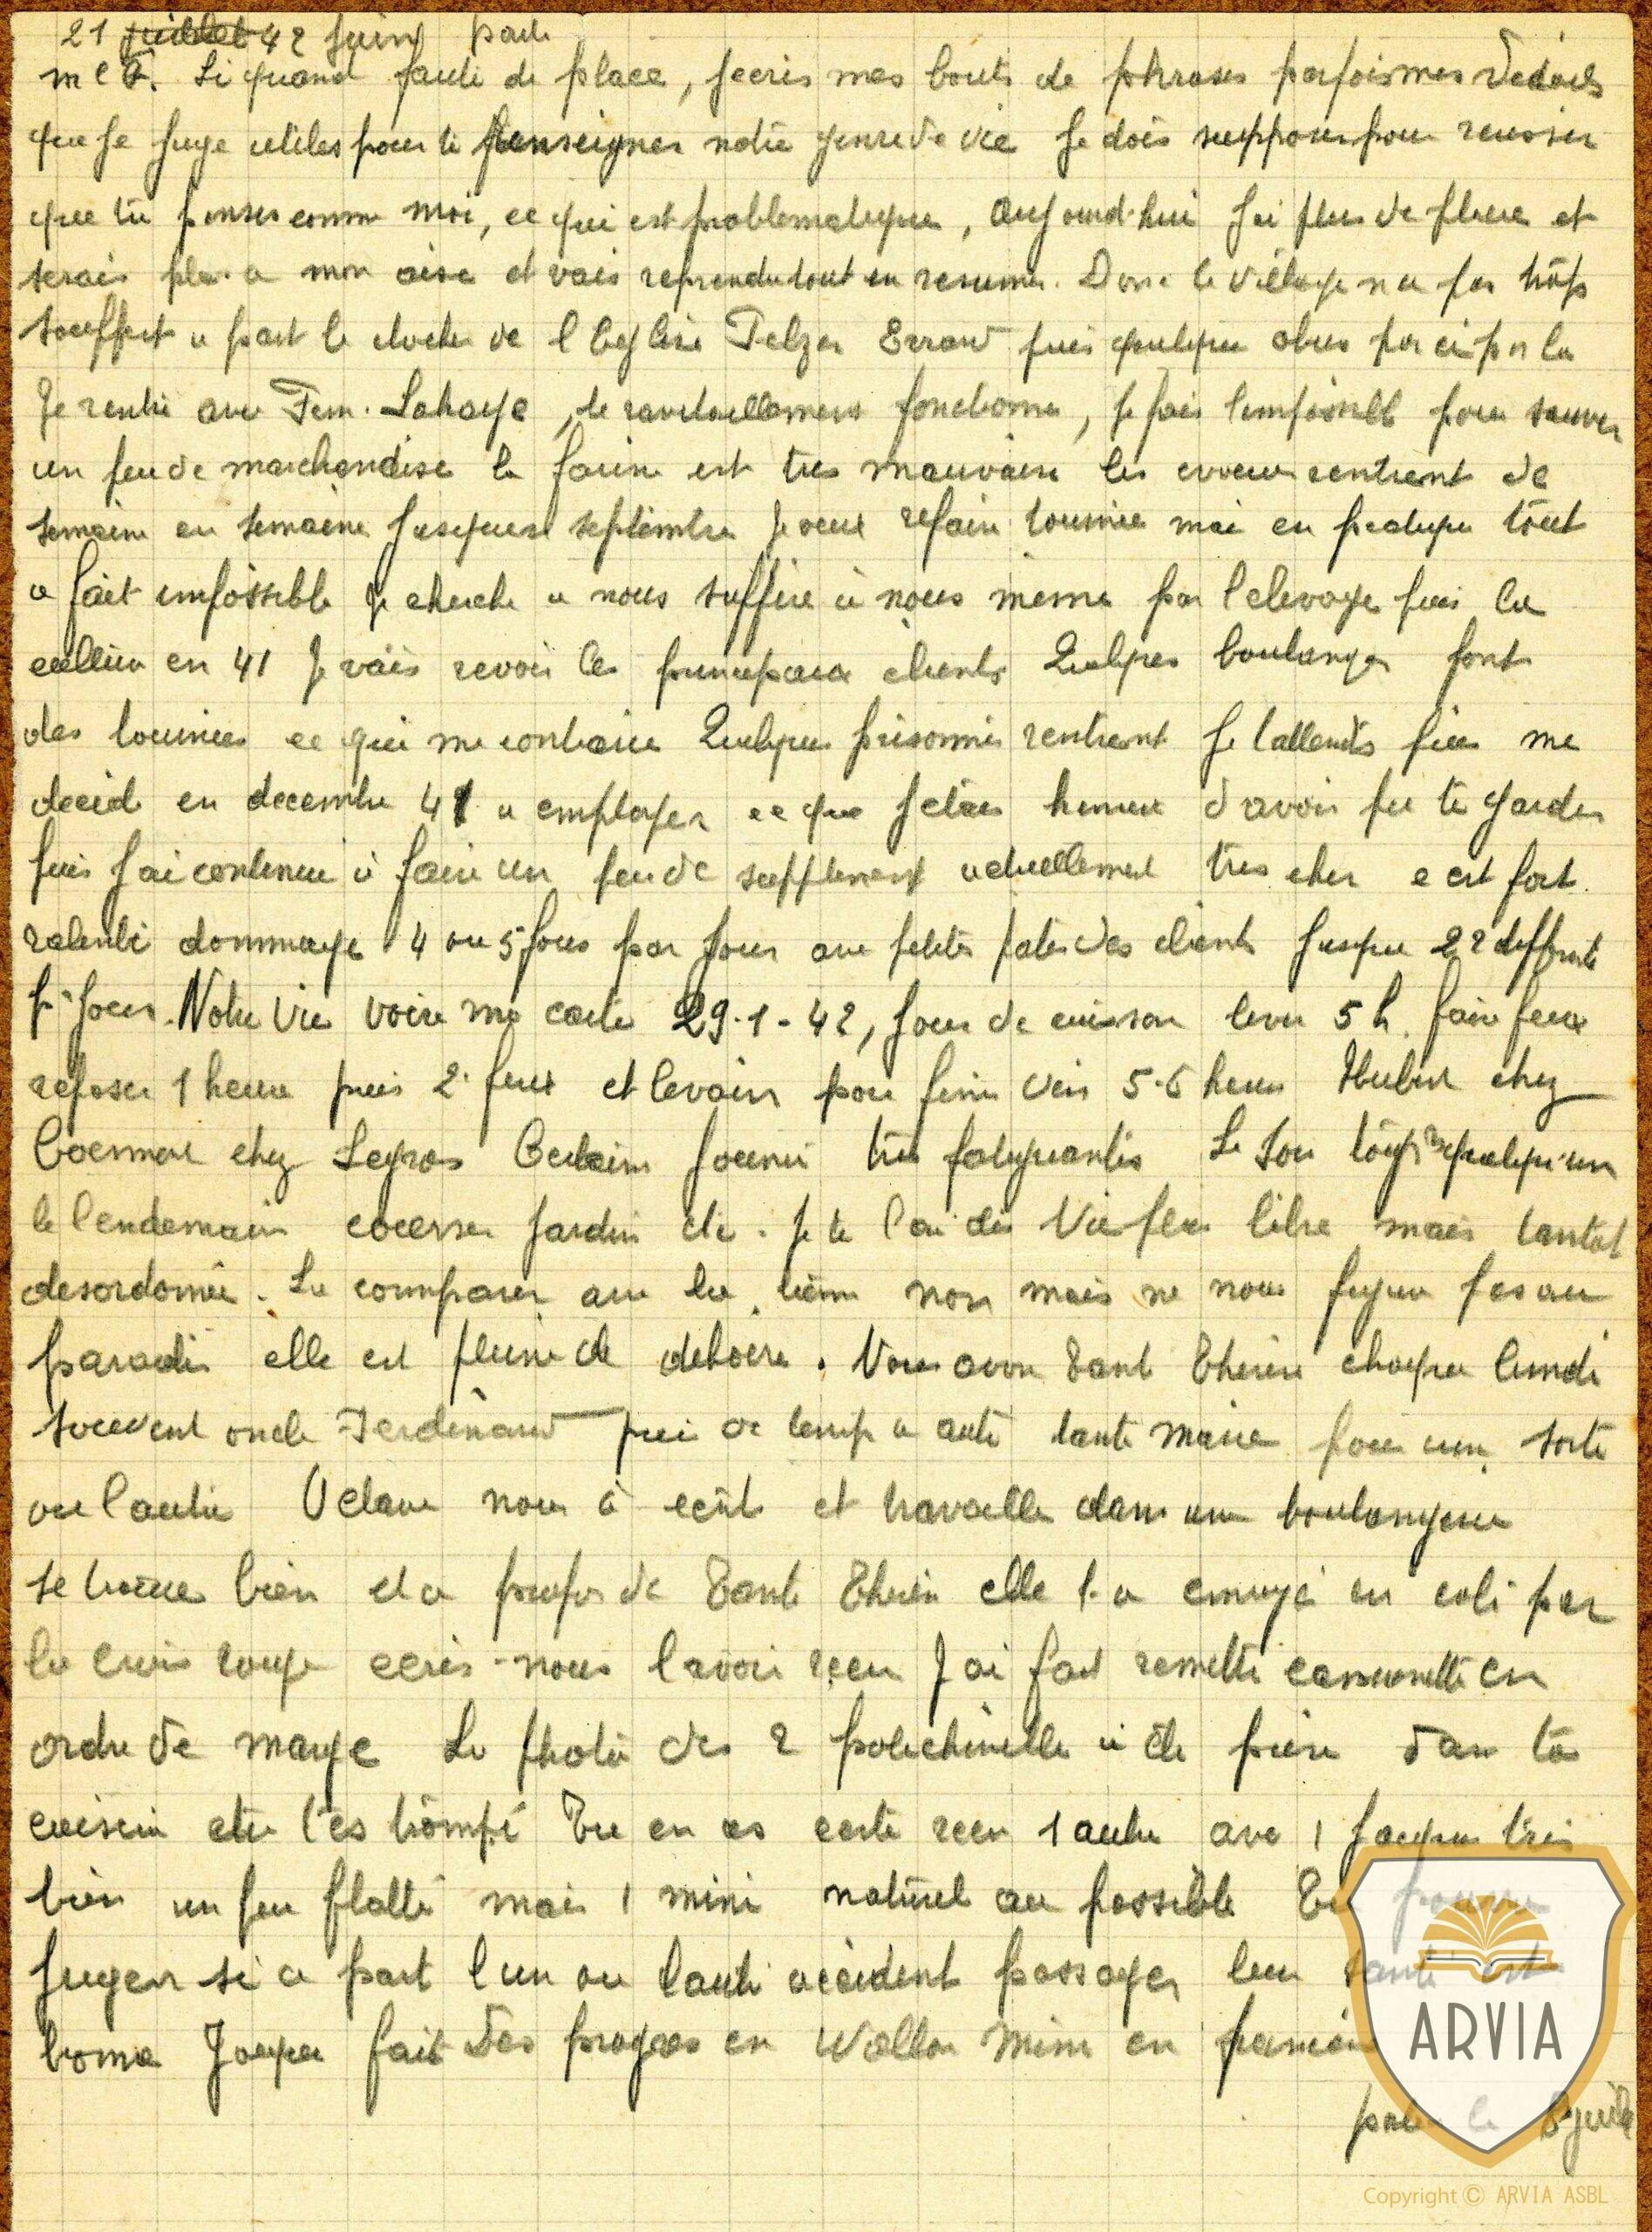 21 juillet 42 juin parti
m c F. Si quand faute de place, j'ecris mes bouts de phrases parfois mes dedails
que je juge utiles pour te renseigner notre genre de vie je dois supposer pour reussir
que tu penses comme moi, ce qui est problematique, aujourd'hui j'ai plus de place et
serais plus a mon aise et vais reprendre tout en resume. Donc le village n a pas trop
souffert a part le clocher de l'Eglise Pelzer Errard puis quelques obus par ci par la
Je rentre avec Fern. Lahaye, le ravitaillement fonctionne, je fais l'impossible pour sauver
un peu de marchandise la farine est tres mauvaise les rentrent de
semaine en semaine jusque septembre je veux refaire tournee mai en pratique tout
a fait impossible je cherche a nous suffire a nous meme par l'elevage puis la
culture en 41 Je vais revoir les principaux clients Quelques boulanger font
des tournees ce qui me contrarie Quelques prisonnier rentrent je t'attends puis me
decide en decembre 41 a employer ce que j'etais heureux d'avoir pu te garder
puis j'ai continue a faire un peu de supplement actuellement tres cher c est fort
ralenti dommage 4 ou 5 fours par jour avec petites pates des clients jusque 22 differents
p jour. Notre vie voire ma carte 29-1-42, jour de cuisson lever 5 h. faire feux
reposer 1 heure puis 2e feux et levain pour finir vers 5-6 heures Hubert chez
chez Legros journee tres fatiguantes Le soir quelqu'un
le lendemain courses jardin etc. je te l'ai dis Vie plus libre mais tantot
desordonnée. La comparer avec la tienne non mais ne nous figure pas au
paradis elle est pleine de deboire. Nous avons Tante Therese chaque lundi
souvent oncle Ferdinand puis de temps a autre tante Marie pour une sorte
ou l'autre Octave nous à ecrit et travaille dans une boulangerie
se trouve bien et a propos de Tante Therese elle t a envoyé un coli par
la croix rouge ecris-nous l'avoir recu J'ai fait remettre camionnette en
ordre de marge La photo des 2 polichinelle a éte prise dans ta
cuisine et tu t'es trompé Tu en as reçu 1 autre avec 1 Jacques tres
bien un peu flatté mais 1 mimi naturel au possible Tu pourra
juger si a part l'un ou l'autre accident passager leur santé est
bonne Jacques fait des progres en Wallon Mimi en francais
pour le 8 juillet
ARVIA
Copyright © ARVIA ASBL